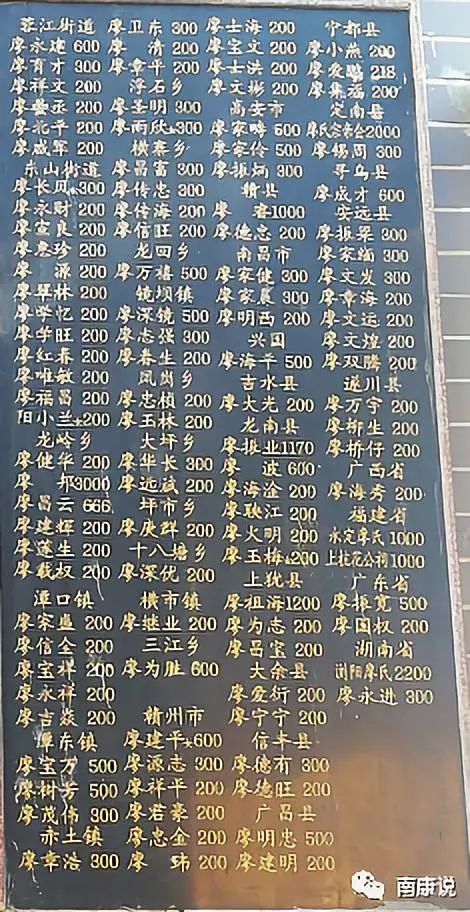 蓉江街道
廖永建 600
廖育才 300
廖祥文 200
廖 200
廖北平 200
廖威军 200
东山街道
廖长凤★300
廖永财 200
廖宣良 200
廖惠珍 200
廖 源 200
廖翠林 200
廖学忆 200
廖学旺 200
廖红春 200
廖唯敏 200
廖福昌 200
阳小兰★200
龙岭乡
廖健华 200
廖 邦3000
廖昌云 666
廖建辉 200
廖蓬生 200
廖载权 200
潭口镇
廖家 200
廖信全 200
廖宝祥 200
廖永祥 200
廖吉焱 200
潭东镇
廖宝万 500
廖树芳 500
廖茂伟 300
赤土镇
廖章浩 300
廖卫东 300
廖 清 200
廖章平 200
浮石乡
廖圣明 300
廖雨欣★300
横寨乡
廖昌富 300
廖传忠 300
廖传海 200
廖信旺 200
龙回乡
廖万禧 500
镜坝镇
廖深镜 500
廖志强 300
廖春生 200
凤岗乡
廖忠桢 200
廖玉林 200
大坪乡
廖华长 300
廖远斌 200
坪市乡
廖庚群 200
十八塘乡
廖深优 200
横市镇
廖继业 200
三江乡
廖为胜 600
赣州市
廖建平★600
廖源志 300
廖祥平 200
廖若豪 200
廖忠金 200
廖 玮 200
廖士海 200
廖宝文 200
廖士洪 200
廖文彬 200
高安市
廖家畴 500
廖家伶 500
廖振炳 300
赣县
廖 睿1000
廖德忠 200
南昌市
廖家健 300
廖家晨 300
廖明西 200
兴国
廖海平 500
吉水县
廖大光 200
龙南县
廖振业1170
廖 波 600
廖海淦 200
廖映江 200
廖火明 200
廖玉梅★200
上犹县
廖祖海1200
廖为志 200
廖吕宝 200
大余县
廖爱衍 200
廖宁宁 200
信丰县
廖德有 300
廖德旺 200
广昌县
廖明忠 500
廖建明 200
宁都县
廖小燕 200
廖爱鹏 218
廖集福 200
定南县
2000
廖锡周 300
寻乌县
廖成才 600
安远县
廖振梁 300
廖家缅 300
廖文发 300
廖章海 200
廖文运 200
廖文煌 200
廖双腾 200
遂川县
廖万宇 200
廖柳生 200
廖桥仔 200
广西省
廖海秀 200
福建省
永定廖氏1000
上杭花公祠1000
广东省
廖振宽 500
廖国权 200
湖南省
浏阳廖氏2200
廖永进 300
南康说